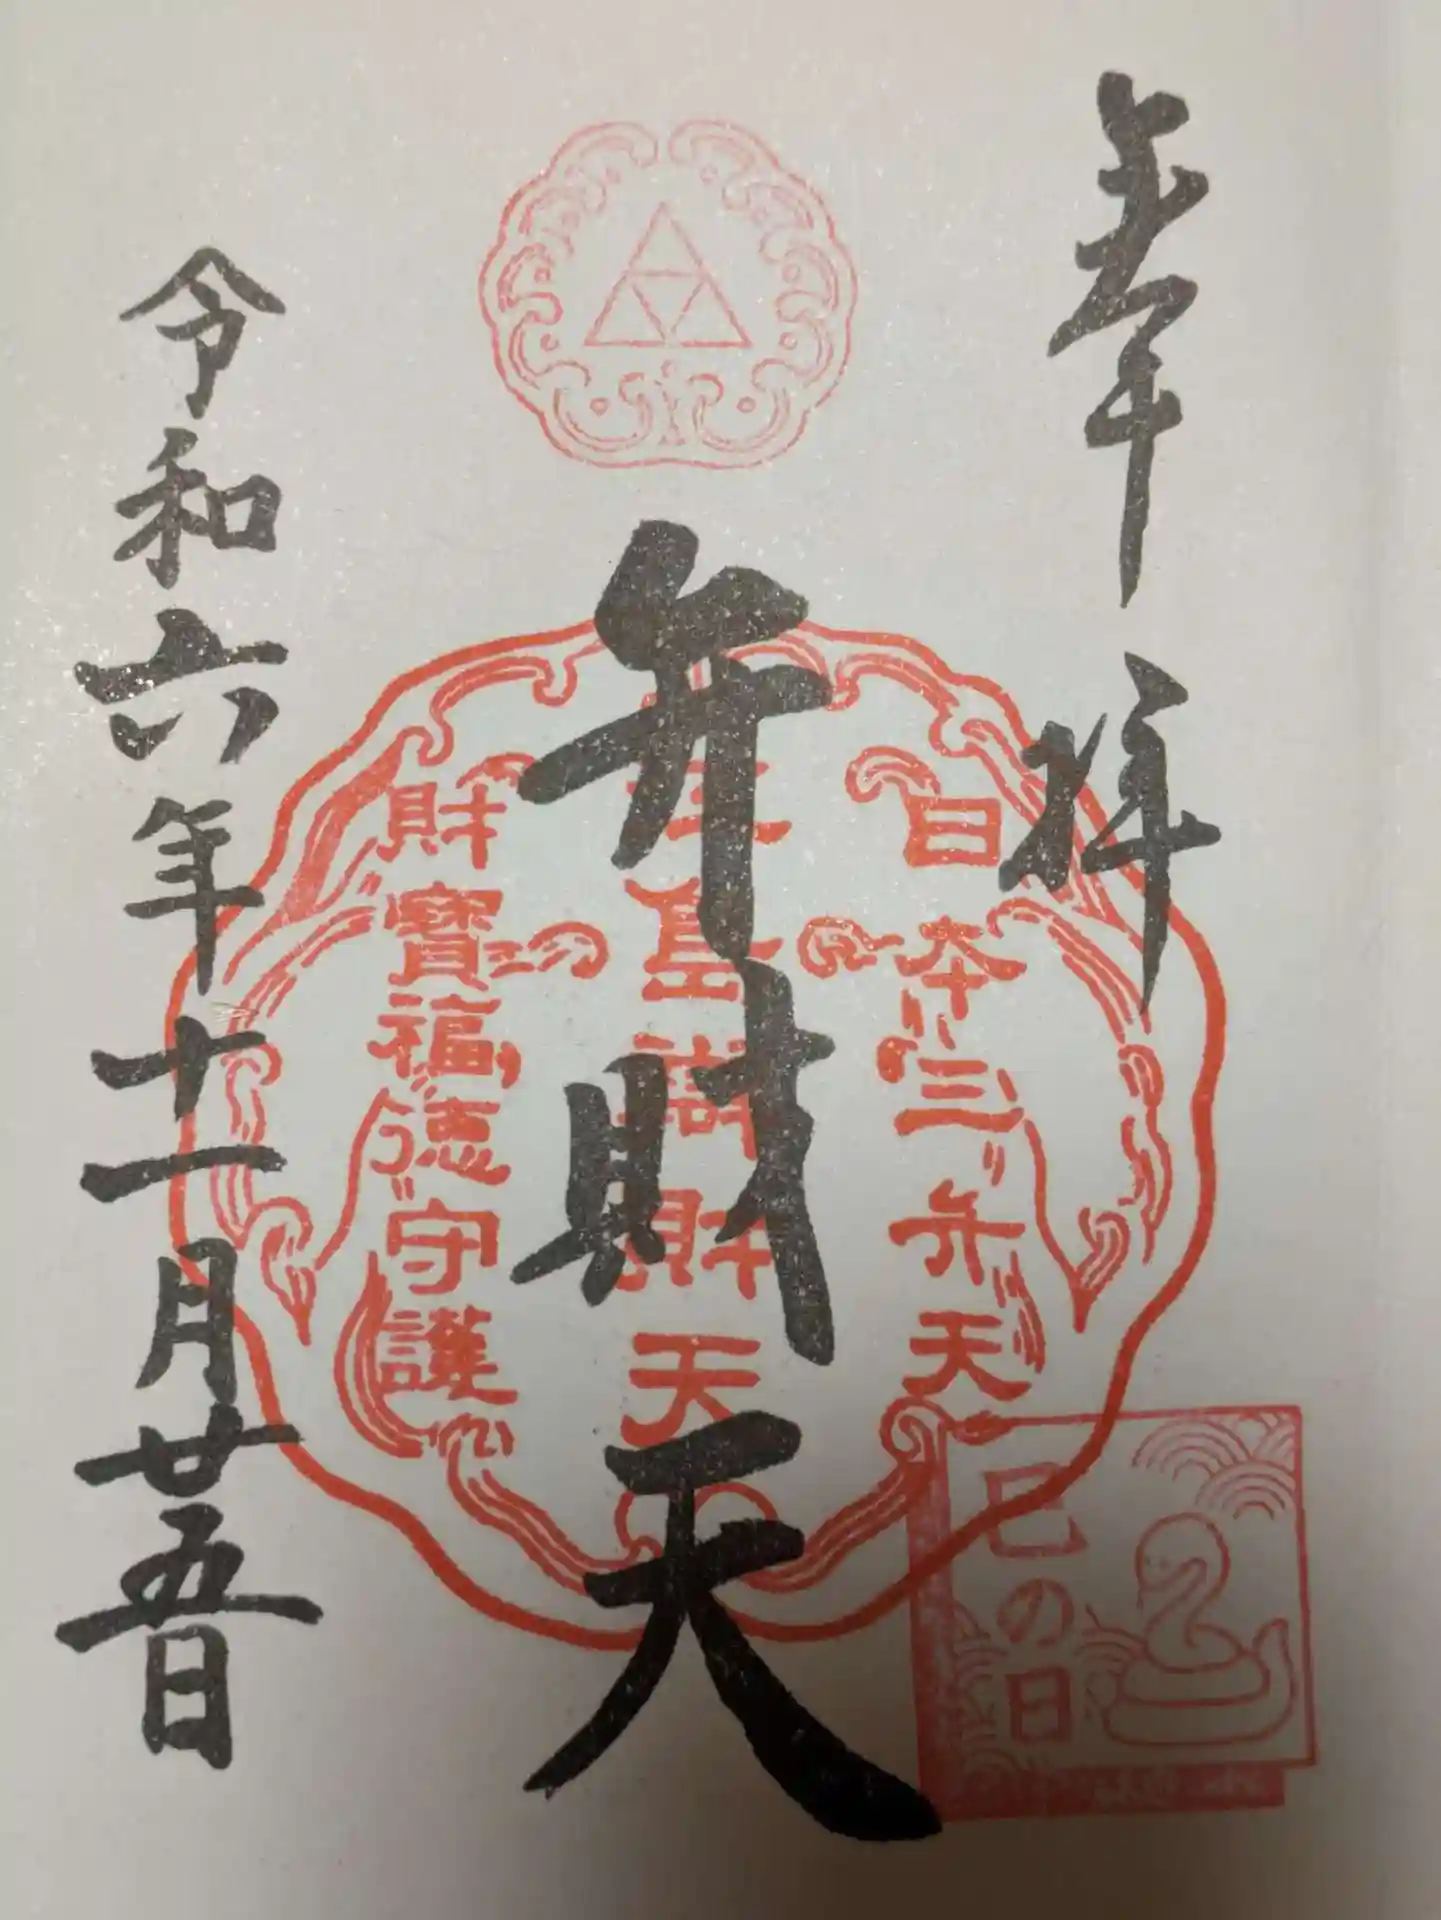 奉拝
日本三弁天
弁財天
財天
財寶福徳守護
令和六年十一月廿五日
巳の日